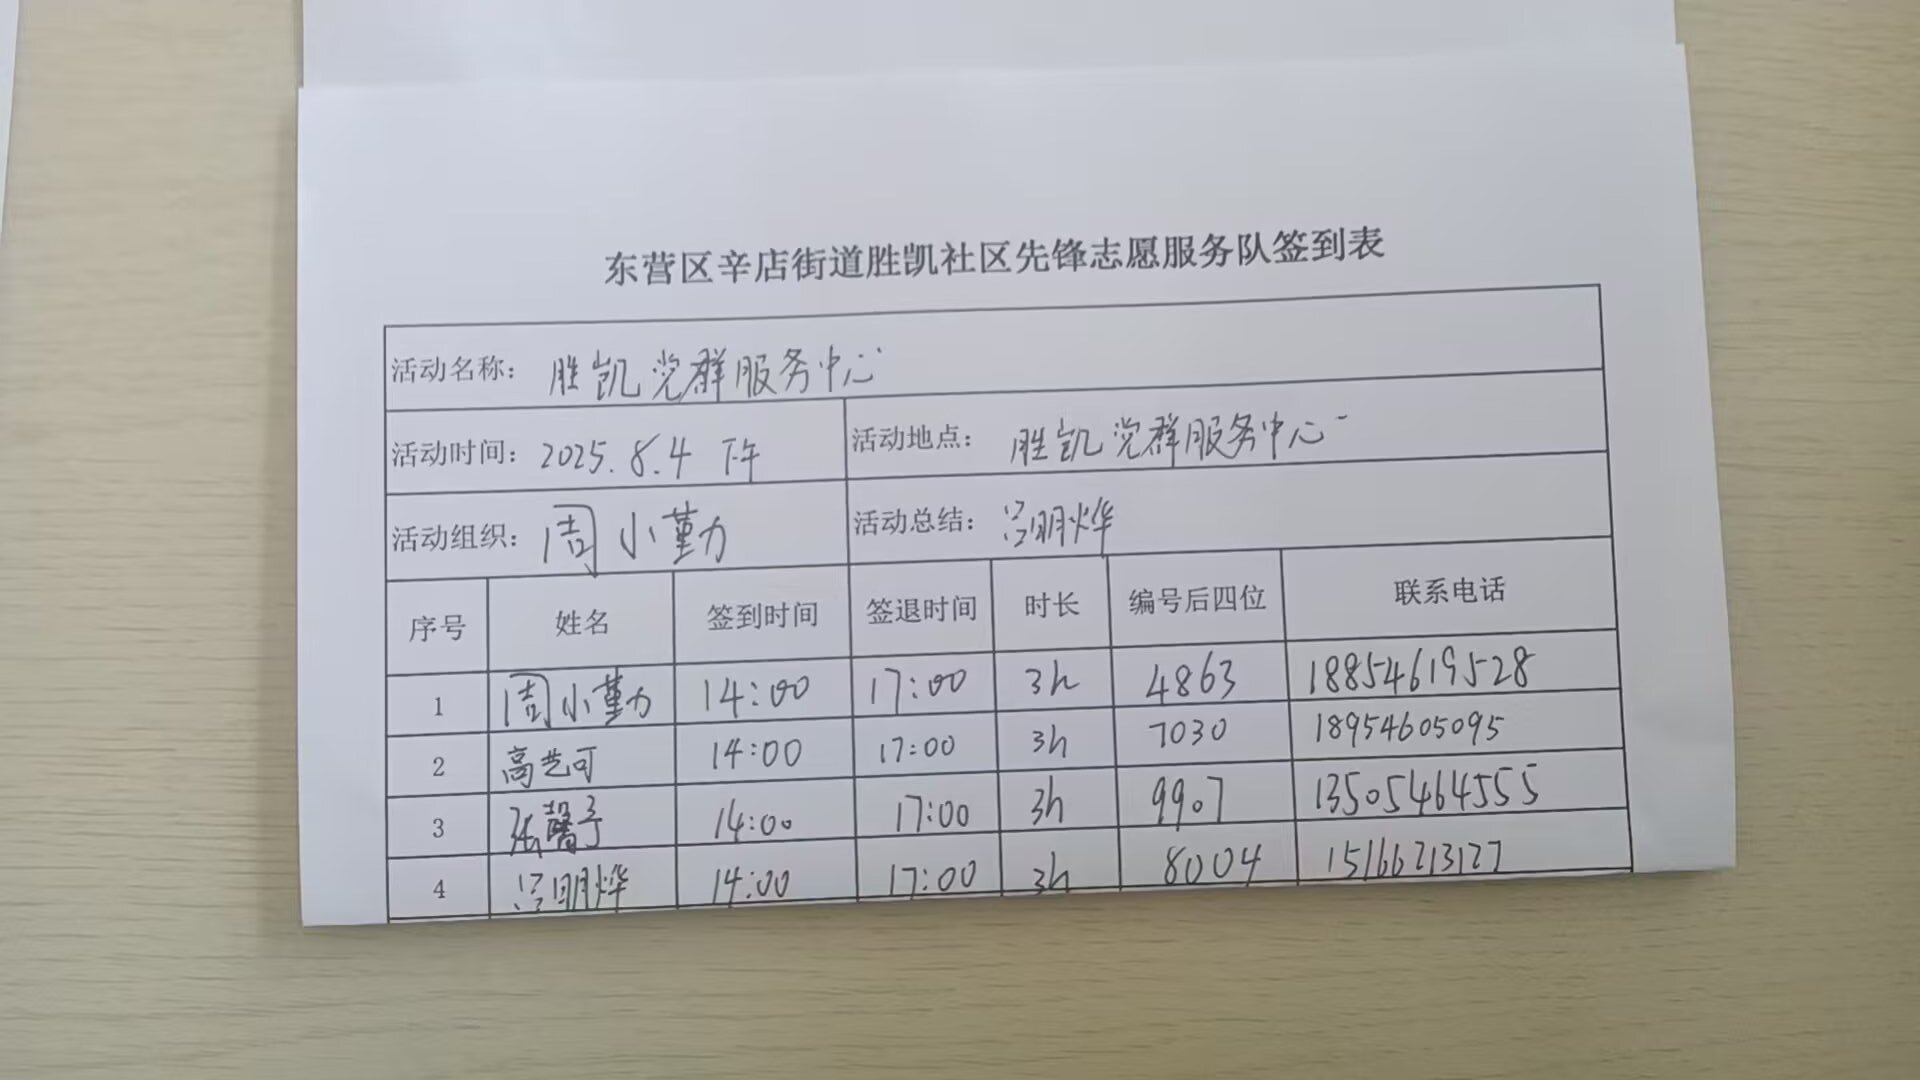 东营区辛店街道胜凯社区先锋志愿服务队签到表
活动名称： 胜凯党群服务中心
活动时间： 2025.8.4 下午 活动地点： 胜凯党群服务中心
活动组织： 周小勤 活动总结： 吕明烨
序号 姓名 签到时间 签退时间 时长 编号后四位 联系电话
1 周小勤 14:00 17:00 3h 4863 18854619528
2 高艺可 14:00 17:00 3h 7030 18954605095
3 张馨予 14:00 17:00 3h 9907 13505464555
4 吕明烨 14:00 17:00 3h 8004 15166213127